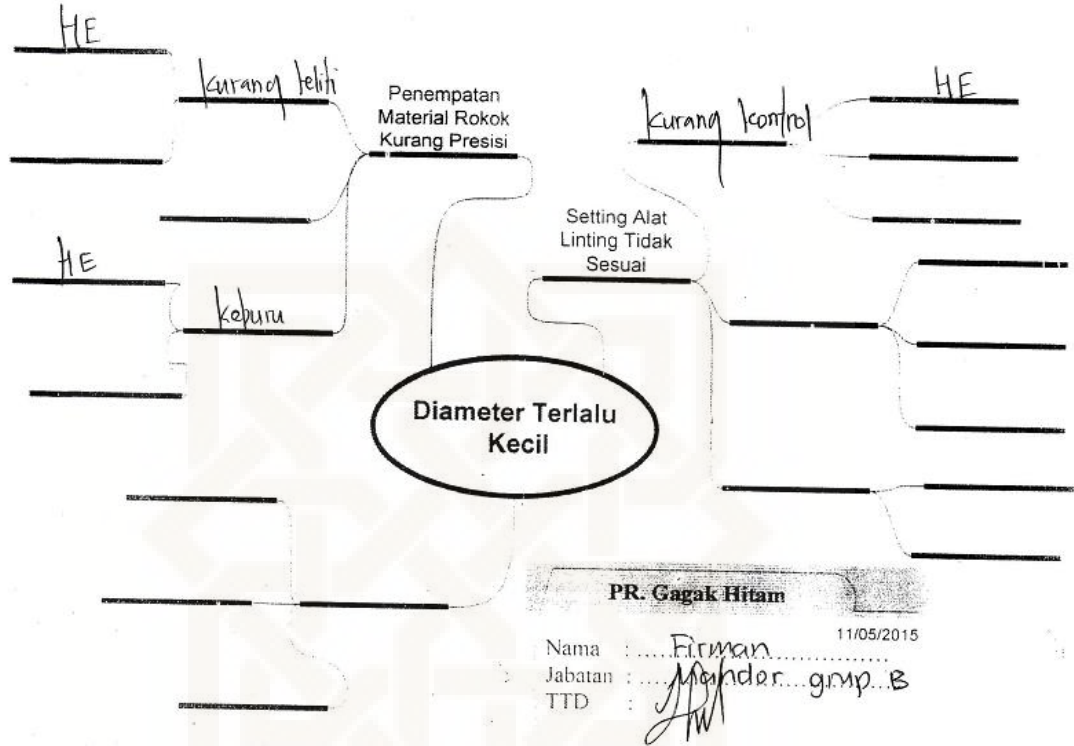 HE
kurang teliti
Penempatan
Material Rokok
Kurang Presisi
HE
keburu
kurang kontrol
HE
Setting Alat
Linting Tidak
Sesuai
Diameter Terlalu
Kecil
PR. Gagak Hitam
11/05/2015
Nama : Firman
Jabatan : Mandor grup B
TTD :